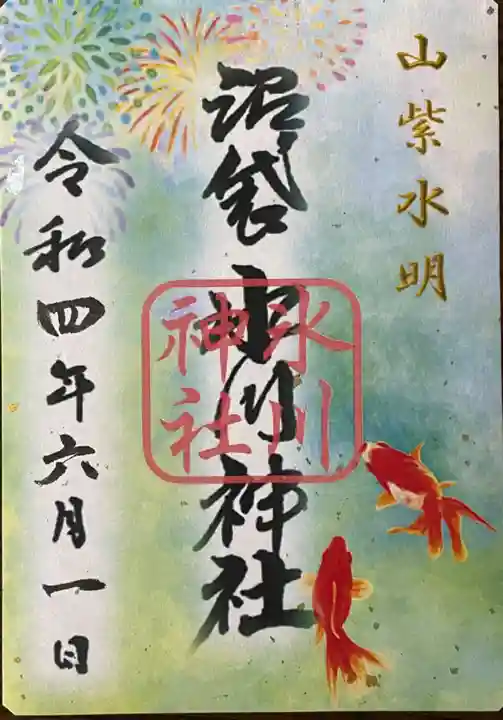 山紫水明
沼袋氷川神社
氷川
神社
令和四年六月一日